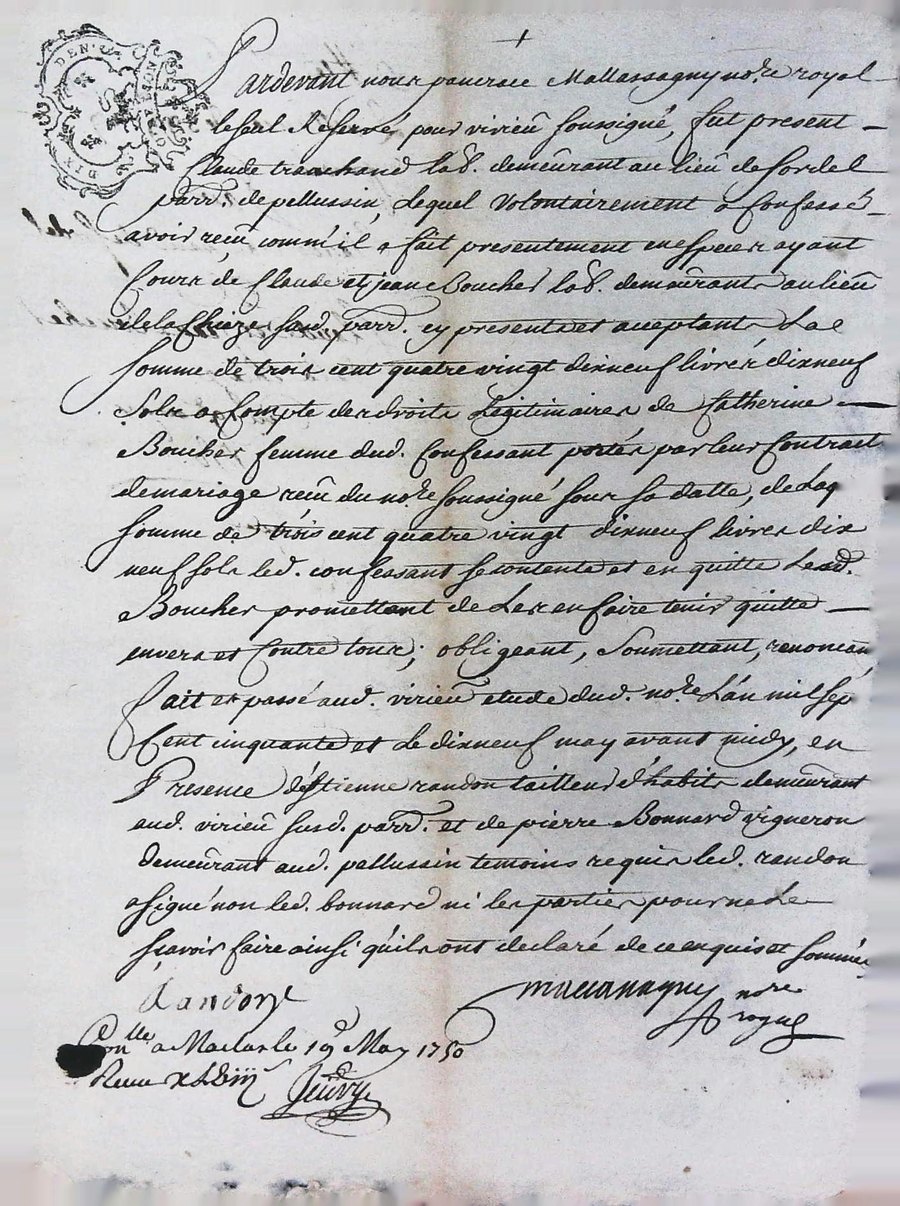 DIX DEN.
Pardevant nous pancrace Mallassagny no.re royal
le seul Reservé, pour virieu soussigné, fut present
Claude tranchand lab. demeurant au lieu de sordel
parr. de pellussin, Lequel Volontairement a Confessé
avoir receu comm'il a fait presentement en especes ayant
Cours de Claude et jean Boucher lab. demeurants au lieu
de la Chieze susd. parr. cy presents et aceptants La
somme de trois cent quatre vingt dixneuf livres dixneuf
sols a Compte des droits Legitimaires de Catherine
Boucher femme dud. Confessant portés par leur Contract
de mariage receu du no.re soussigné sous sa datte, de Laq
somme de trois cent quatre vingt dixneuf livres dix
neuf sols led. confessant se contente et en quitte Lesd.
Boucher promettant de Les en faire tenir quitte
envers et Contre tous; obligeant, Soumettant, renoncan
fait et passé aud. virieu etude dud. no.re L'an mil sep
Cent cinquante et Le dixneuf may avant midy, en
Presence d'Estienne randon tailleur d'habits demeurant
aud. virieu susd. parr. et de pierre Bonnard vigneron
demeurant aud. pellussin temoins requis led. randon
a signé non led. bonnard ni les parties pour ne Le
sçavoir faire ainsi qu'ils ont declaré de ce enquis et sommés
Randon
no.re
royal
Con.lle a Maclas le 19 May 1750
Receu